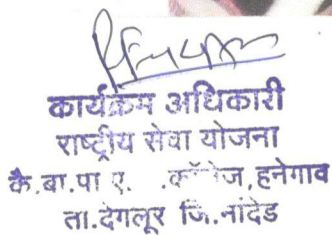 कार्यक्रम अधिकारी
राष्ट्रीय सेवा योजना
कै.बा.पा ए. .कॉलेज,हनेगाव
ता.देगलूर जि.नांदेड